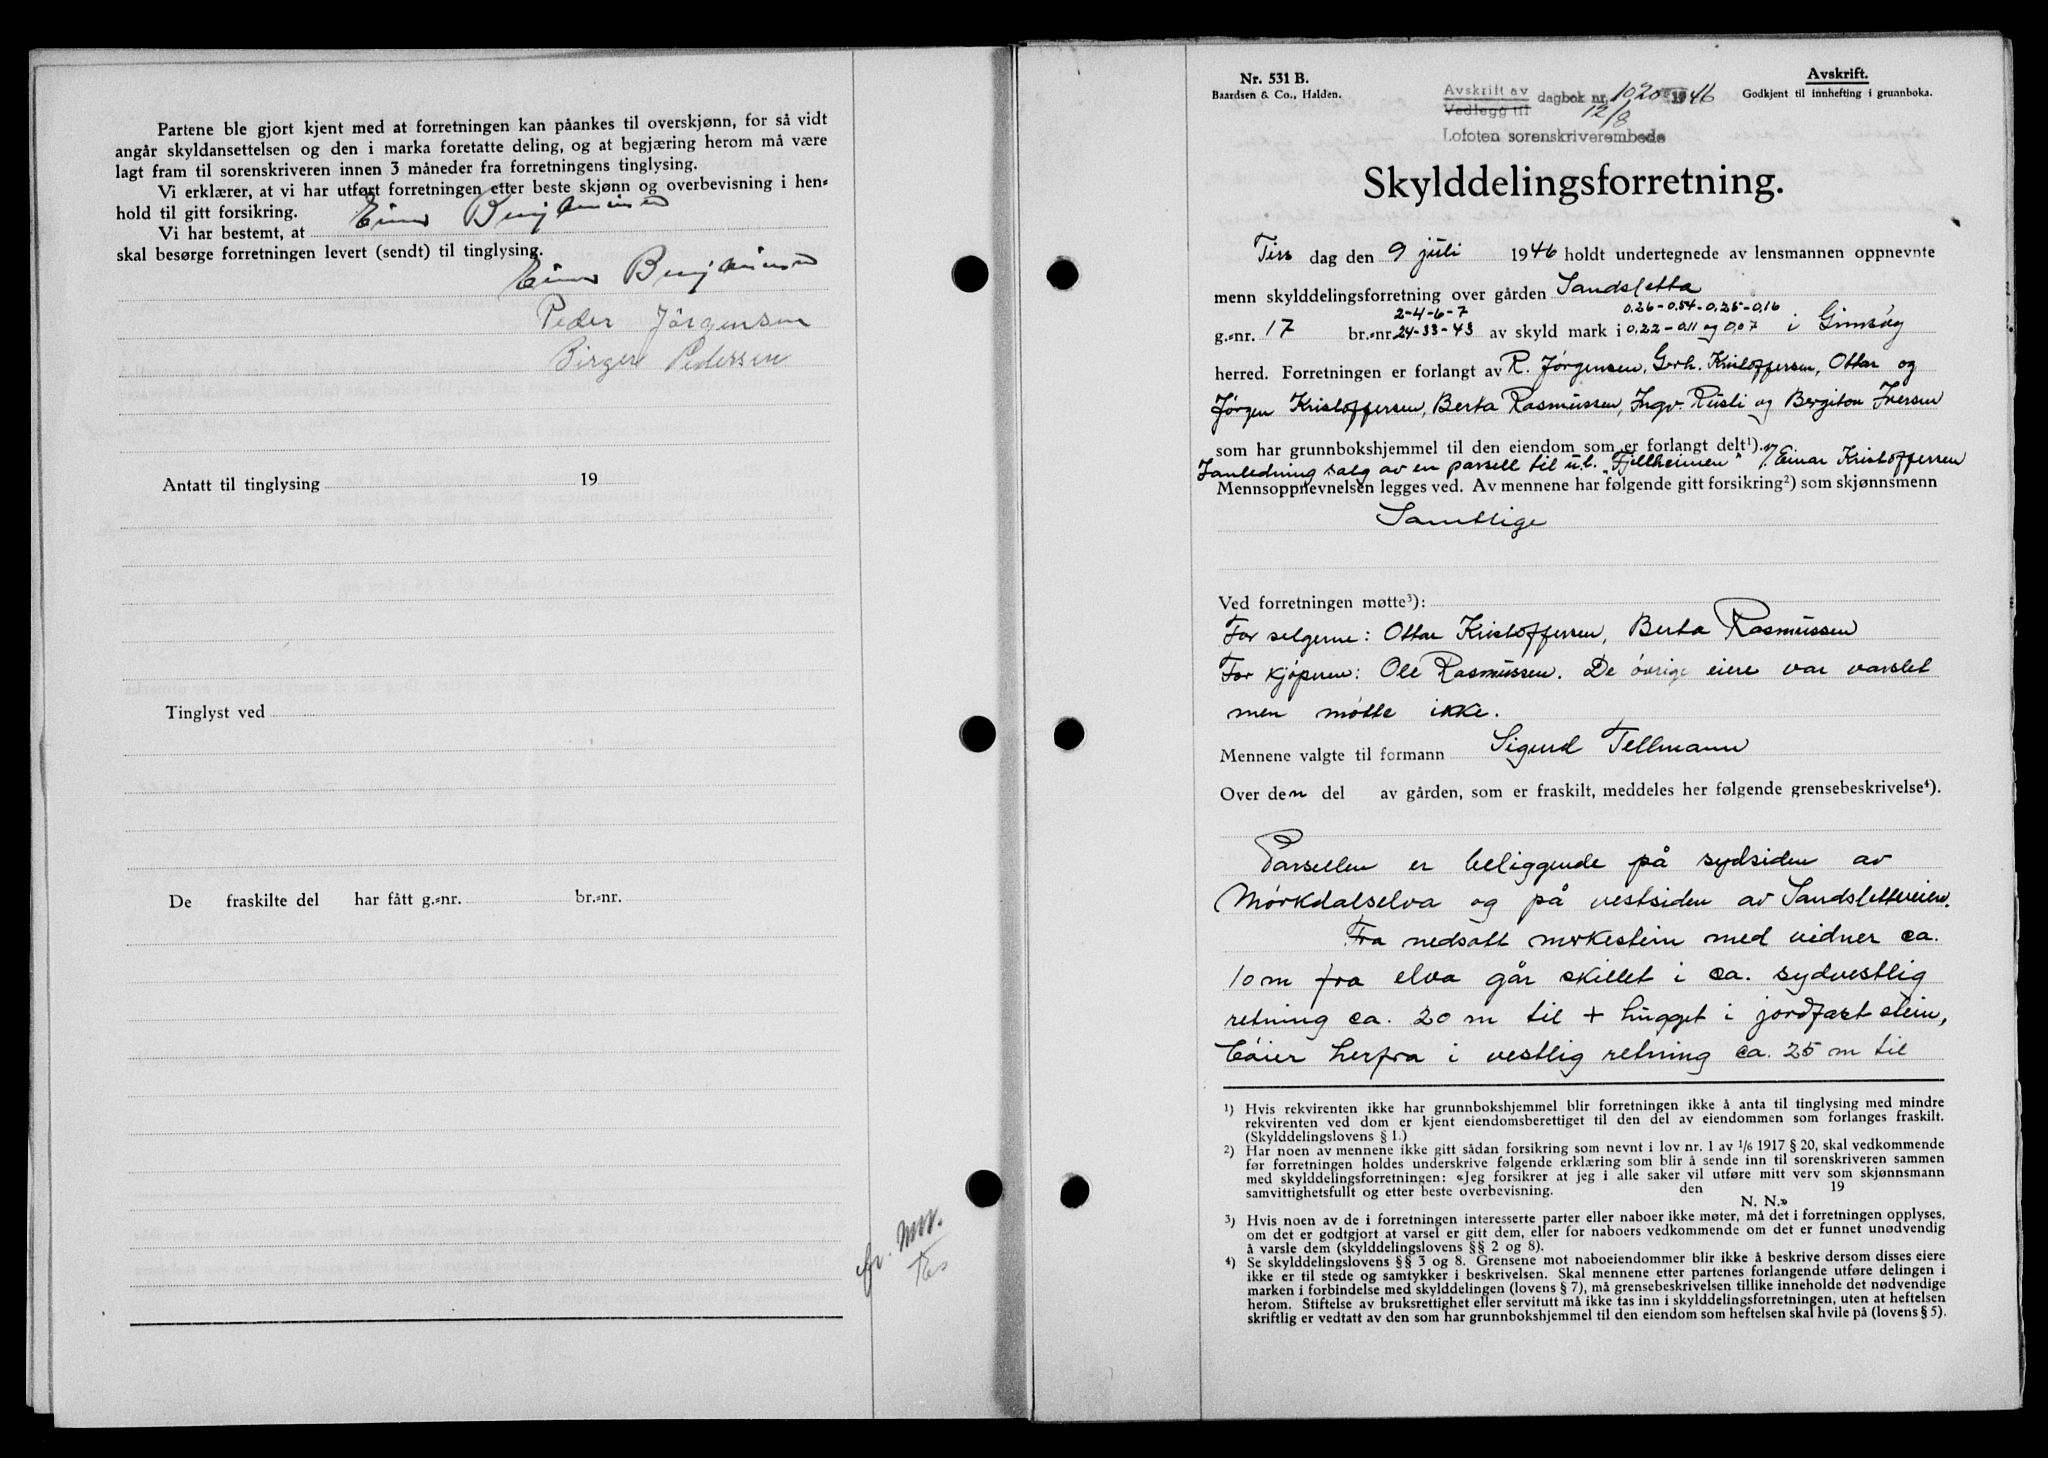 Partene ble gjort kjent med at forretningen kan påankes til overskjønn, for så vidt
angår skyldansettelsen og den i marka foretatte deling, og at begjæring herom må være
lagt fram til sorenskriveren innen 3 måneder fra forretningens tinglysing.
Vi erklærer, at vi har utført forretningen etter beste skjønn og overbevisning i hen-
hold til gitt forsikring.
Vi har bestemt, at Einar Benjaminsen
skal besørge forretningen levert (sendt) til tinglysing.
Einar Benjaminsen
Peder Jørgensen
Birger Pedersen
Antatt til tinglysing 19
Tinglyst ved
De fraskilte del har fått g.-nr. br.-nr.
Nr. 531 B.
Baardsen & Co., Halden.
Avskrift av
Vedlegg til
dagbok nr. 1020 1946
12/8
Lofoten sorenskriverembede
Avskrift.
Godkjent til innhefting i grunnboka.
Skylddelingsforretning.
Tirs dag den 9 juli 1946 holdt undertegnede av lensmannen oppnevnte
menn skylddelingsforretning over gården Sandsletta
2-4-6-7 0,26-0,54-0,25-0,16
g.-nr. 17 br.-nr. 24-33-43 av skyld mark i 0,22-0,11 og 0,07 i Gimsøy
herred. Forretningen er forlangt av R. Jørgensen, Gerh. Kristoffersen, Ottar og
Jørgen Kristoffersen, Berta Rasmussen, Ingv. Rusli og Bergiton Iversen
som har grunnbokshjemmel til den eiendom som er forlangt delt¹).
Ianledning salg av en parsell til u.l. "Fjellheimen" v/ Einar Kristoffersen
Mennsoppnevnelsen legges ved. Av mennene har følgende gitt forsikring²) som skjønnsmenn
Samtlige
Ved forretningen møtte³):
For selgerne: Ottar Kristoffersen, Berta Rasmussen
For kjøperen: Ole Rasmussen. De øvrige eiere var varslet
men møtte ikke.
Mennene valgte til formann Sigurd Tellmann
Over den del av gården, som er fraskilt, meddeles her følgende grensebeskrivelse⁴).
Parsellen er beliggende på sydsiden av
Mørkdalselva og på vestsiden av Sandsletteveien.
Fra nedsatt merkestein med vidner ca.
10 m fra elva går skillet i ca. sydvestlig
retning ca. 20 m til + hugget i jordfast stein,
bøier herfra i vestlig retning ca. 25 m til
¹) Hvis rekvirenten ikke har grunnbokshjemmel blir forretningen ikke å anta til tinglysing med mindre
rekvirenten ved dom er kjent eiendomsberettiget til den del av eiendommen som forlanges fraskilt.
(Skylddelingslovens § 1.)
²) Har noen av mennene ikke gitt sådan forsikring som nevnt i lov nr. 1 av 1/6 1917 § 20, skal vedkommende
før forretningen holdes underskrive følgende erklæring som blir å sende inn til sorenskriveren sammen
med skylddelingsforretningen: «Jeg forsikrer at jeg i alle saker vil utføre mitt verv som skjønnsmann
samvittighetsfullt og etter beste overbevisning. den 19
N. N.»
³) Hvis noen av de i forretningen interesserte parter eller naboer ikke møter, må det i forretningen opplyses,
om det er godtgjort at varsel er gitt dem, eller for naboers vedkommende om det er funnet unødvendig
å varsle dem (skylddelingslovens §§ 2 og 8).
⁴) Se skylddelingslovens §§ 3 og 8. Grensene mot naboeiendommer blir ikke å beskrive dersom disses eiere
ikke er til stede og samtykker i beskrivelsen. Skal mennene etter partenes forlangende utføre delingen i
marken i forbindelse med skylddelingen (lovens § 7), må grensebeskrivelsen tillike inneholde det nødvendige
herom. Stiftelse av bruksrettighet eller servitutt må ikke tas inn i skylddelingsforretningen, uten at heftelsen
skriftlig er vedtatt av den som har grunnbokshjemmel til den eiendom som heftelsen skal hvile på (lovens § 5).